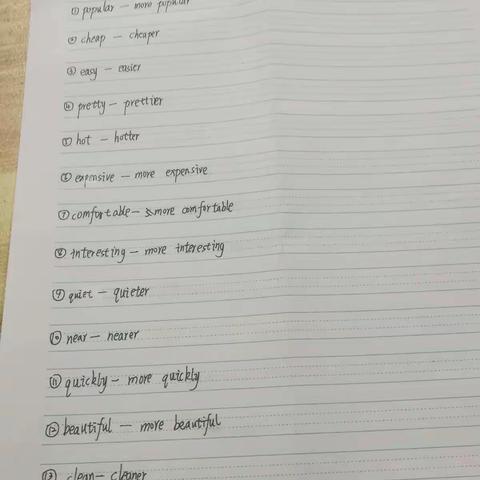 ① popular — more popular
② cheap — cheaper
③ easy — easier
④ pretty — prettier
⑤ hot — hotter
⑥ expensive — more expensive
⑦ comfortable — more comfortable
⑧ interesting — more interesting
⑨ quiet — quieter
⑩ near — nearer
⑪ quickly — more quickly
⑫ beautiful — more beautiful
⑬ clean — cleaner